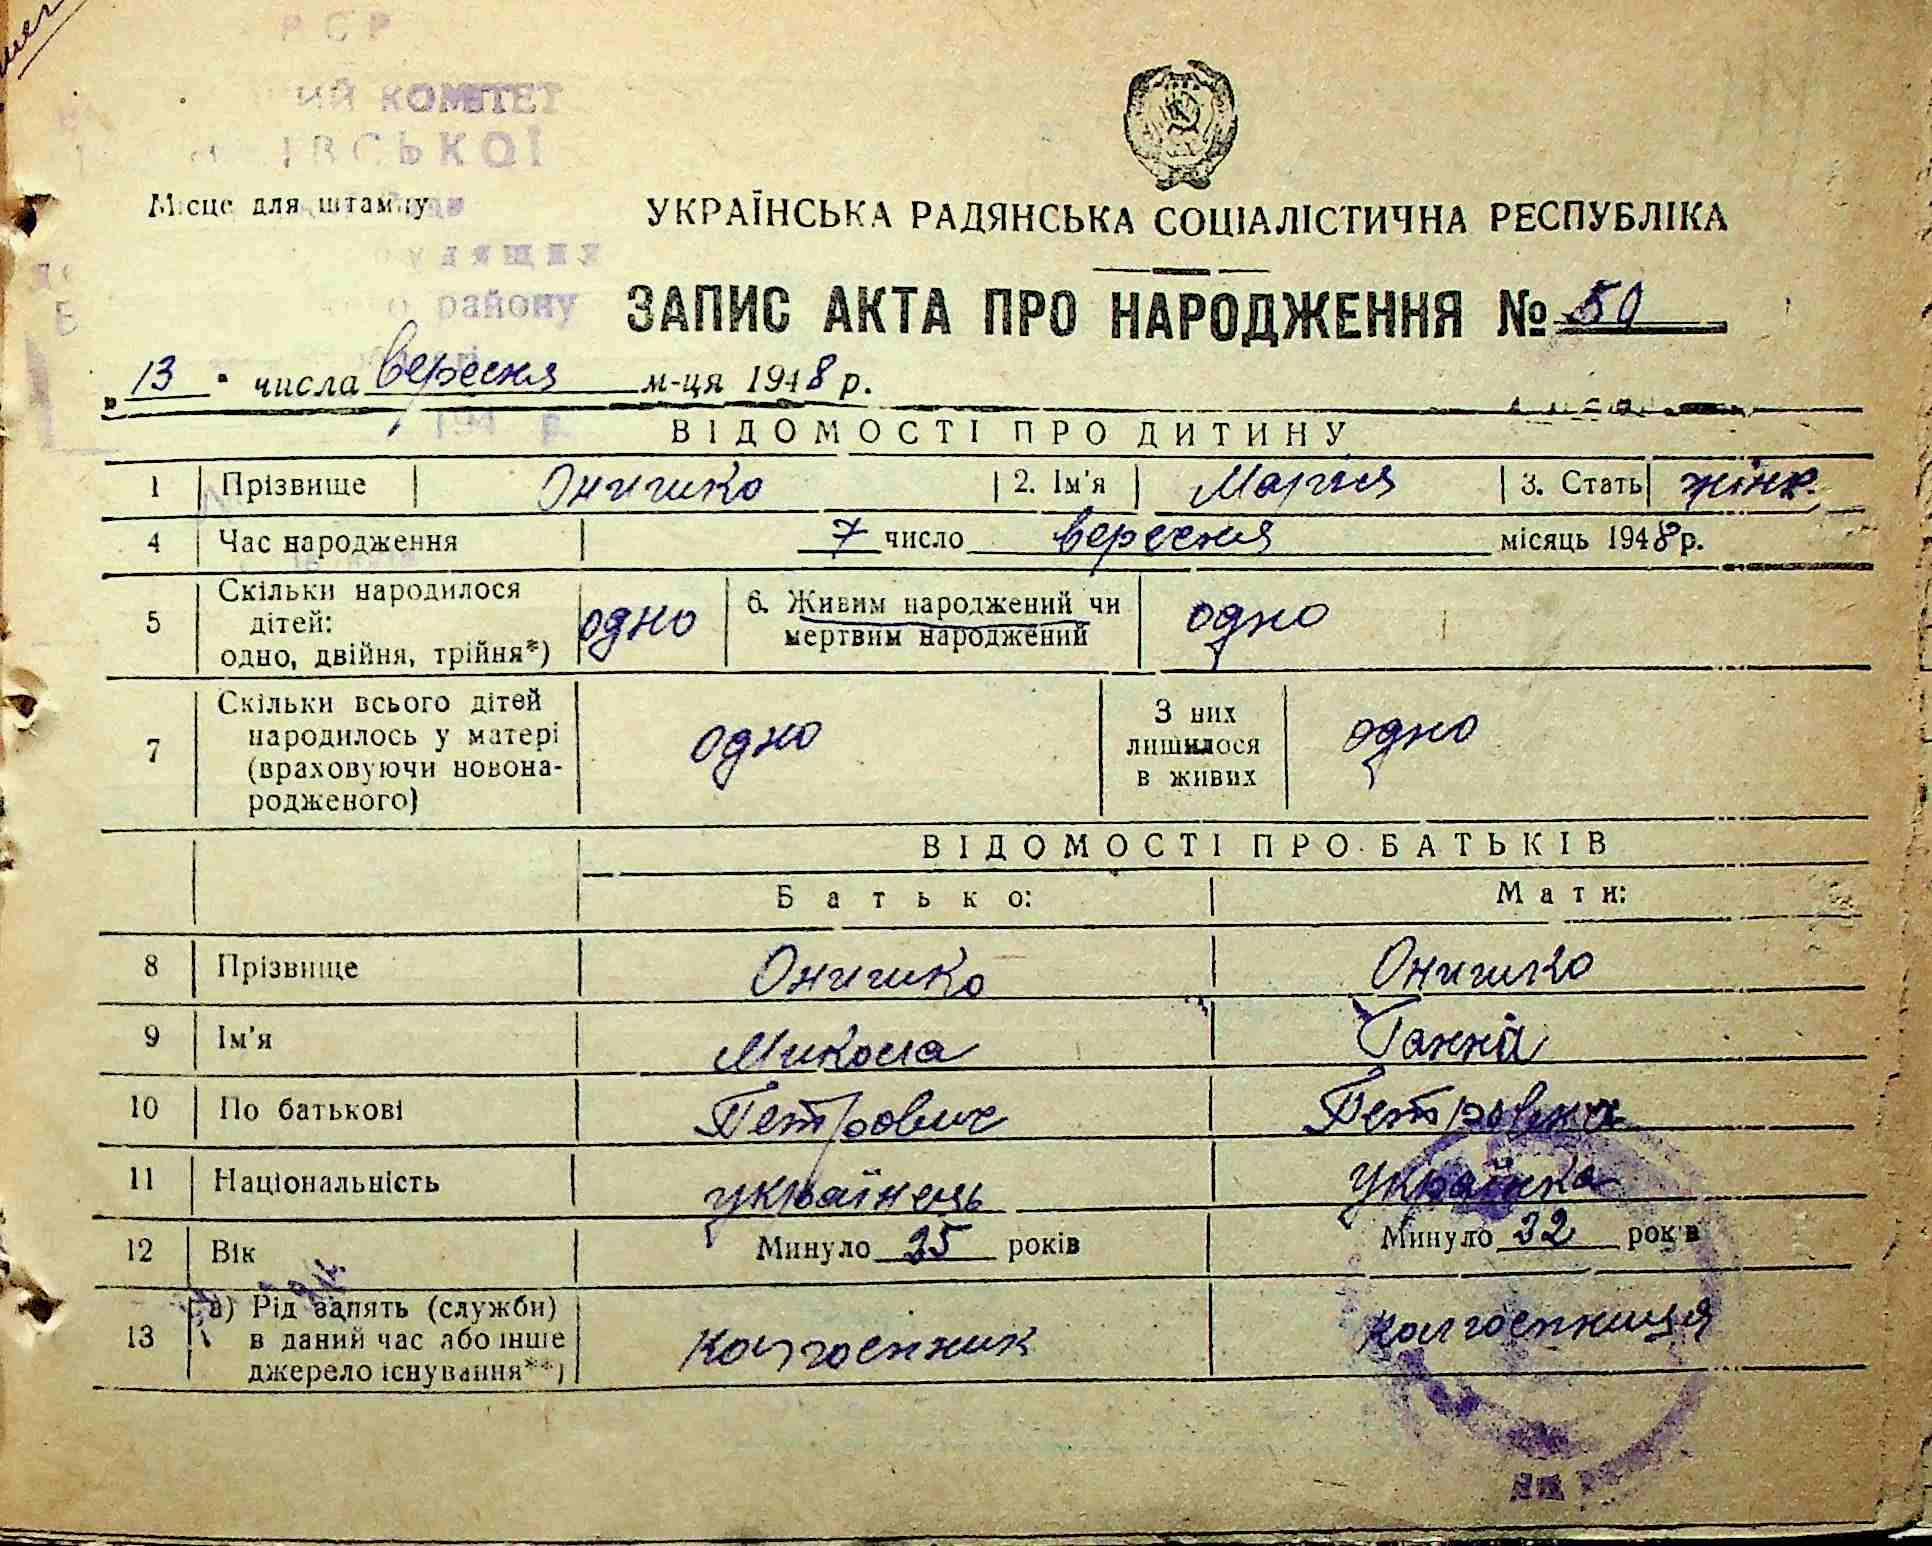 РСР
КОМІТЕТ
ІВСЬКОЇ
Місце для штампу
УКРАЇНСЬКА РАДЯНСЬКА СОЦІАЛІСТИЧНА РЕСПУБЛІКА
трудящих
району
ЗАПИС АКТА ПРО НАРОДЖЕННЯ № 50
„ 13 " числа вересня м-ця 1948 р.
194 р.
ВІДОМОСТІ ПРО ДИТИНУ
1 Прізвище Онишко 2. Ім'я Марія 3. Стать жінк.
4 Час народження 7 число вересня місяць 1948 р.
5 Скільки народилося дітей: одно, двійня, трійня*) одно 6. Живим народжений чи мертвим народжений одно
7 Скільки всього дітей народилось у матері (враховуючи новонародженого) одно З них лишилося в живих одно
ВІДОМОСТІ ПРО БАТЬКІВ
Батько: Мати:
8 Прізвище Онишко Онишко
9 Ім'я Микола Ганна
10 По батькові Петрович Петровна
11 Національність українець українка
12 Вік Минуло 35 років Минуло 32 років
13 а) Рід занять (служби) в даний час або інше джерело існування**) колгоспник колгоспниця